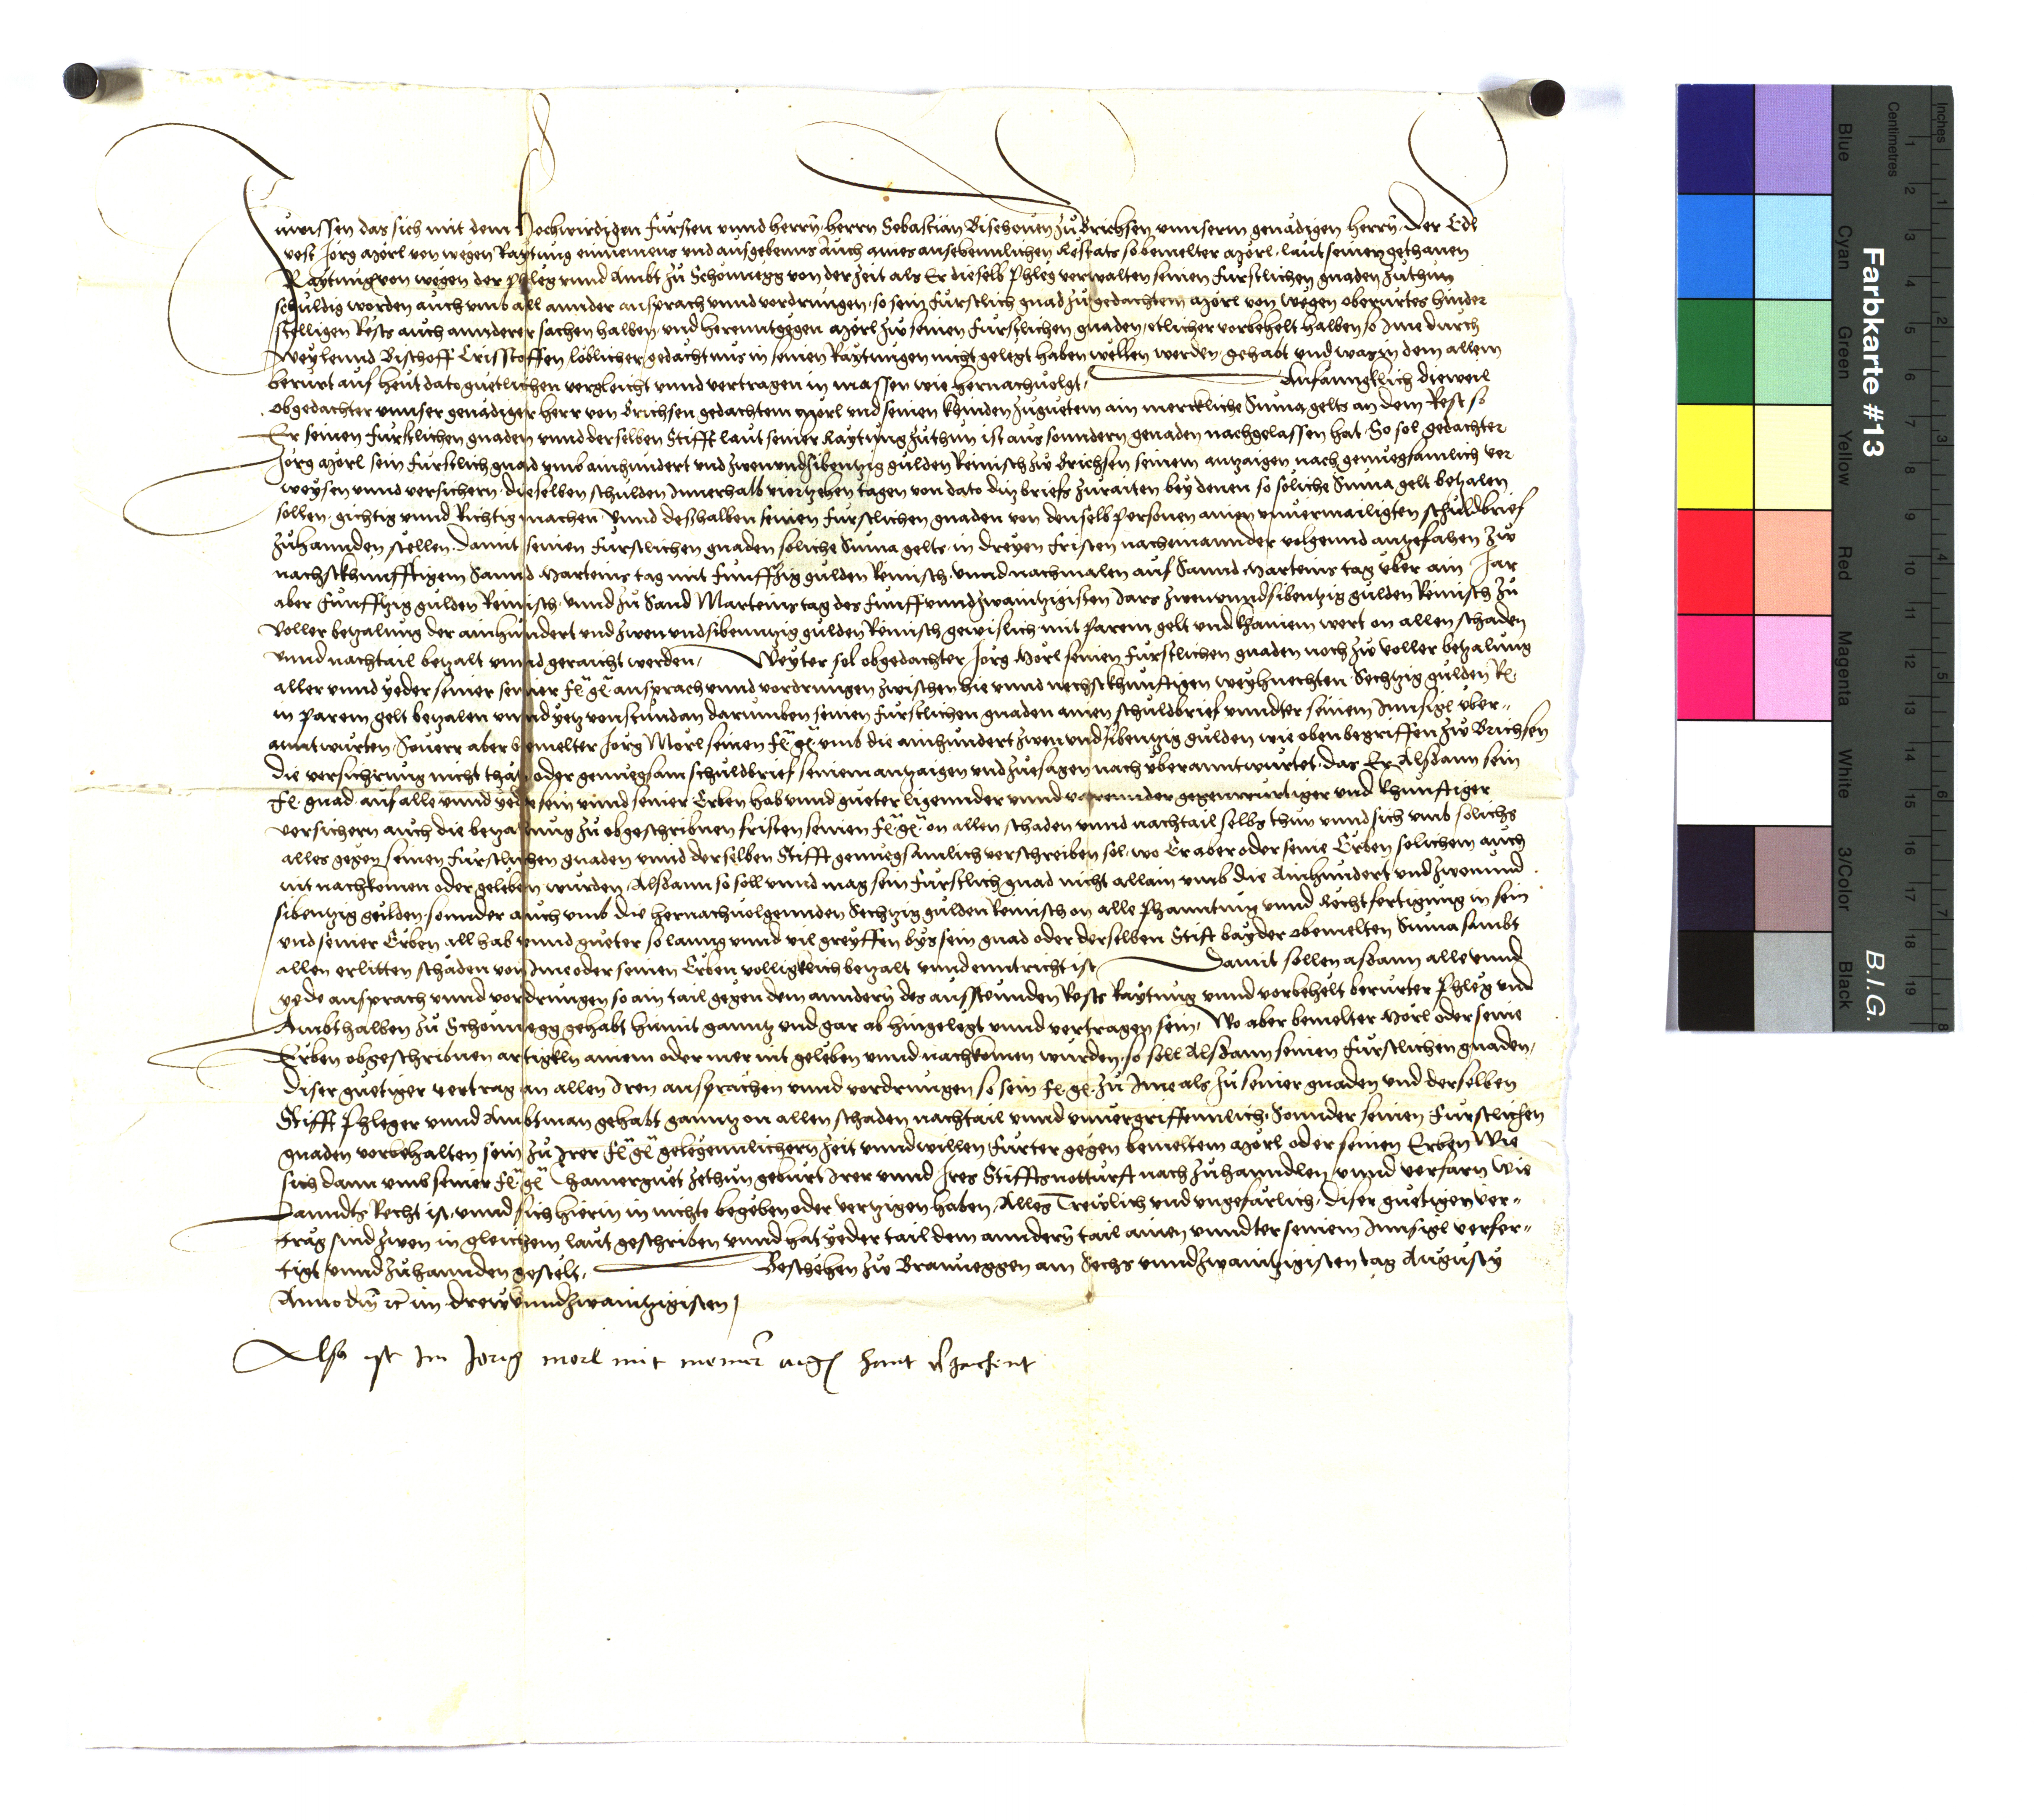 Zuwissen das sich mit dem Hochwirdigen Fürsten vnnd herrn, herrn Sebastian Bischouen zu Brichsen vnnserm genädigen herrn, Der Edl
vest Jörg Mörl von wegen Raytung einnemens vnd ausgebenns Auch aines ansehennlichen Restats so bemelter Mörl, laut seiner gethanen
Raytung von wegen der Phleg vnnd Ambt zu Schönnegg von der zeit als Er dieselb Phleg verwalten seinen Fürstlichen gnaden zuthun
schuldig worden auch vmb all annder ansprach vnnd vordrungen, so sein Fürstlich gnad zu gedachtem Mörl von wegen oberürtes hinder
stelligen Rests auch annderer sachen halben, vnd herenntgegen Mörl zw seinen Fürstlichen gnaden, etlicher vorbehelt halben so Ime durch
Weylennd Bischoff Cristoffen löblicher gedächtnus in seinen Raytungen nicht gelegt haben wellen werden, gehabt vnd war, in dem allem
berürt auf heut dato guetlichen vergleicht vnnd vertragen in massen wie hernachuolgt, Anfanngklich dieweil
obgedachter vnnser genädiger herr von Brichsen gedachtem Mörl vnd seinen khinden zuguetem ain merckliche Suma gelts an dem Rest so
Er seinen Fürstlichen gnaden vnnd derselben Stifft laut seiner Raytung zuthun ist aus sonndern genaden nachgelassen hat, So sol gedachter
Jörg Mörl sein Fürstlich gnad vmb ainhundert vnd zwenundsibentzig gulden Reinisch zw Brichsen seinem antzaigen nach genuegsamlich ver
weysen vnnd versichern, dieselben schulden Innerhalb viertzehen tagen von dato ditz briefs zuraiten bey denen so soliche Suma gelt betzalen
sollen, gichtig vnnd Richtig machen, Vnnd deßhalben seinen Fürstlichen gnaden von denselb Personen ainen vnuermailigten schuldbrief
zuhannden stellen, Damit seinen Fürstlichen gnaden soliche Suma gelts, in dreyen Fristen nacheinannder volgennd angefahen zw
nachstkhunfftigem Sannd Marteins tag mit Funffzig gulden Reinisch, vnnd nachmalen auf Sannd Marteins tag vber ain Jar
aber Funfftzig gulden Reinisch, vnnd zu Sand Marteins tag des Funffvnndzwaintzigisten Jars zwenvnndsibentzig gulden Reinisch zu
voller betzalung der ainhundert vnd zwenvndsibenntzig gulden Reinisch gewislich mit Parem gelt vnd khainem wert on allen schaden
vnnd nachtail betzalt vnnd geraicht werden, Weyter sol obgedachter Jörg Mörl seinen Fürstlichen gnaden noch zw voller betzalung
aller vnnd yeder seiner seiner Fl. gl. ansprach vnnd vordrungen zwischen hie vnnd nechstkhunftigen weyhnechten Sechtzig gulden R.
in Parem gelt betzalen vnnd yetz von stundan darumben seinen Fürstlichen gnaden ainen schuldbrief vnndter seinem Innsigl vber-
anntwurten, Souerr aber bemelter Jörg Mörl seinen Fl. gl. vmb die ainhundert zwenvndsibentzig gulden wie oben begriffen zw Brichsen
die versichrung nicht thät, oder genuegsam schuldbrief seinem antzaigen vnd zuesagen nach vberanntwurtet, das Er Alsdann sein
Fl. gnad auf alle vnnd yede sein vnnd seiner Erben hab vnnd gueter ligennder vnnd varennder gegenwurtiger vnd khunftiger
versichern auch die betzalung zu obgeschribnen fristen seinen Fl. gl. on allen schaden vnnd nachtail selbs thun vnnd sich vmb solichs
alles gegen seinen Fürstlichen gnaden vnnd derselben Stifft genuegsamlich verschreiben sol, wo Er aber oder seine Erben solichem auch
nit nachkomen oder geleben wurden, Alsdann so soll vnnd mag sein Fürstlich gnad nicht allain vmb die Ainhundert vnd zwenund
sibentzig gulden, sonnder auch vmb die hernachuolgennden Sechtzig gulden Reinisch on alle Phanntung vnnd Rechtfertigung in sein
vnd seiner Erben all hab vnnd gueter so lanng vnnd vil greyffen bys sein gnad oder derselben Stift bayder obemelten Suma sambt
allen erlitten schaden von Ime oder seinen Erben volligklich betzalt vnnd enntricht ist, Damit sollen asdann alle vnnd
yede ansprach vnnd vordrungen so ain tail gegen dem anndern des ausstennden Rests Raytung vnnd vorbehelt berürter Phleg vnd
Ambt halben zu Schönnegg gehabt himit ganntz vnd gar ab hingelegt vnnd vertragen sein, Wo aber bemelter Mörl oder seine
Erben obgeschribnen artigkeln ainem oder mer nit geleben vnnd nachkomen wurden, so soll Alsdann seinen Fürstlichen gnaden,
diser guetiger vertrag an allen Iren ansprachen vnnd vordrungen so sein Fl. gl. zu Ime als zu seiner gnaden vnd derselben
Stifft Phleger vnnd Ambtman gehabt ganntz on allen schaden nachtail vnnd vnuergriffennlich, Sonnder seinen Fürstlichen
gnaden vorbehalten sein zu Irer Fl. gl. gelegennlichern zeit vnnd willen, Furter gegen bemeltem Mörl oder seinen Erben Wie
sich dann vmb seiner Fl. gl. Chamerguet zethun gebürt Irer vnnd Ires Stiffts notturft nach zuhanndlen vnnd verfarn wie
Lanndts Recht ist, vnnd sich hierin in nichte begeben oder vertzigen haben, Alles Trewlich vnd vngefärlich, Diser guetigen ver-
träg sind zwen in gleichem laut geschriben vnnd hat yeder tail dem anndern tail ainen vnndter seinem Innsigl verfer-
tigt vnnd zuhannden gestelt, Beschehen zw Brauneggen am Sechs vnnd zwaintzigisten tag Augusty
Anno dni rc im drewvnndzwaintzigisten,
Also ist Im Jorig morl mit meiner aigen hant
Farbkarte #13
B.I.G.
Blue Cyan Green Yellow Red Magenta White 3/Color Black
Centimetres
Inches
1 2 3 4 5 6 7 8 9 10 11 12 13 14 15 16 17 18 19
1 2 3 4 5 6 7 8